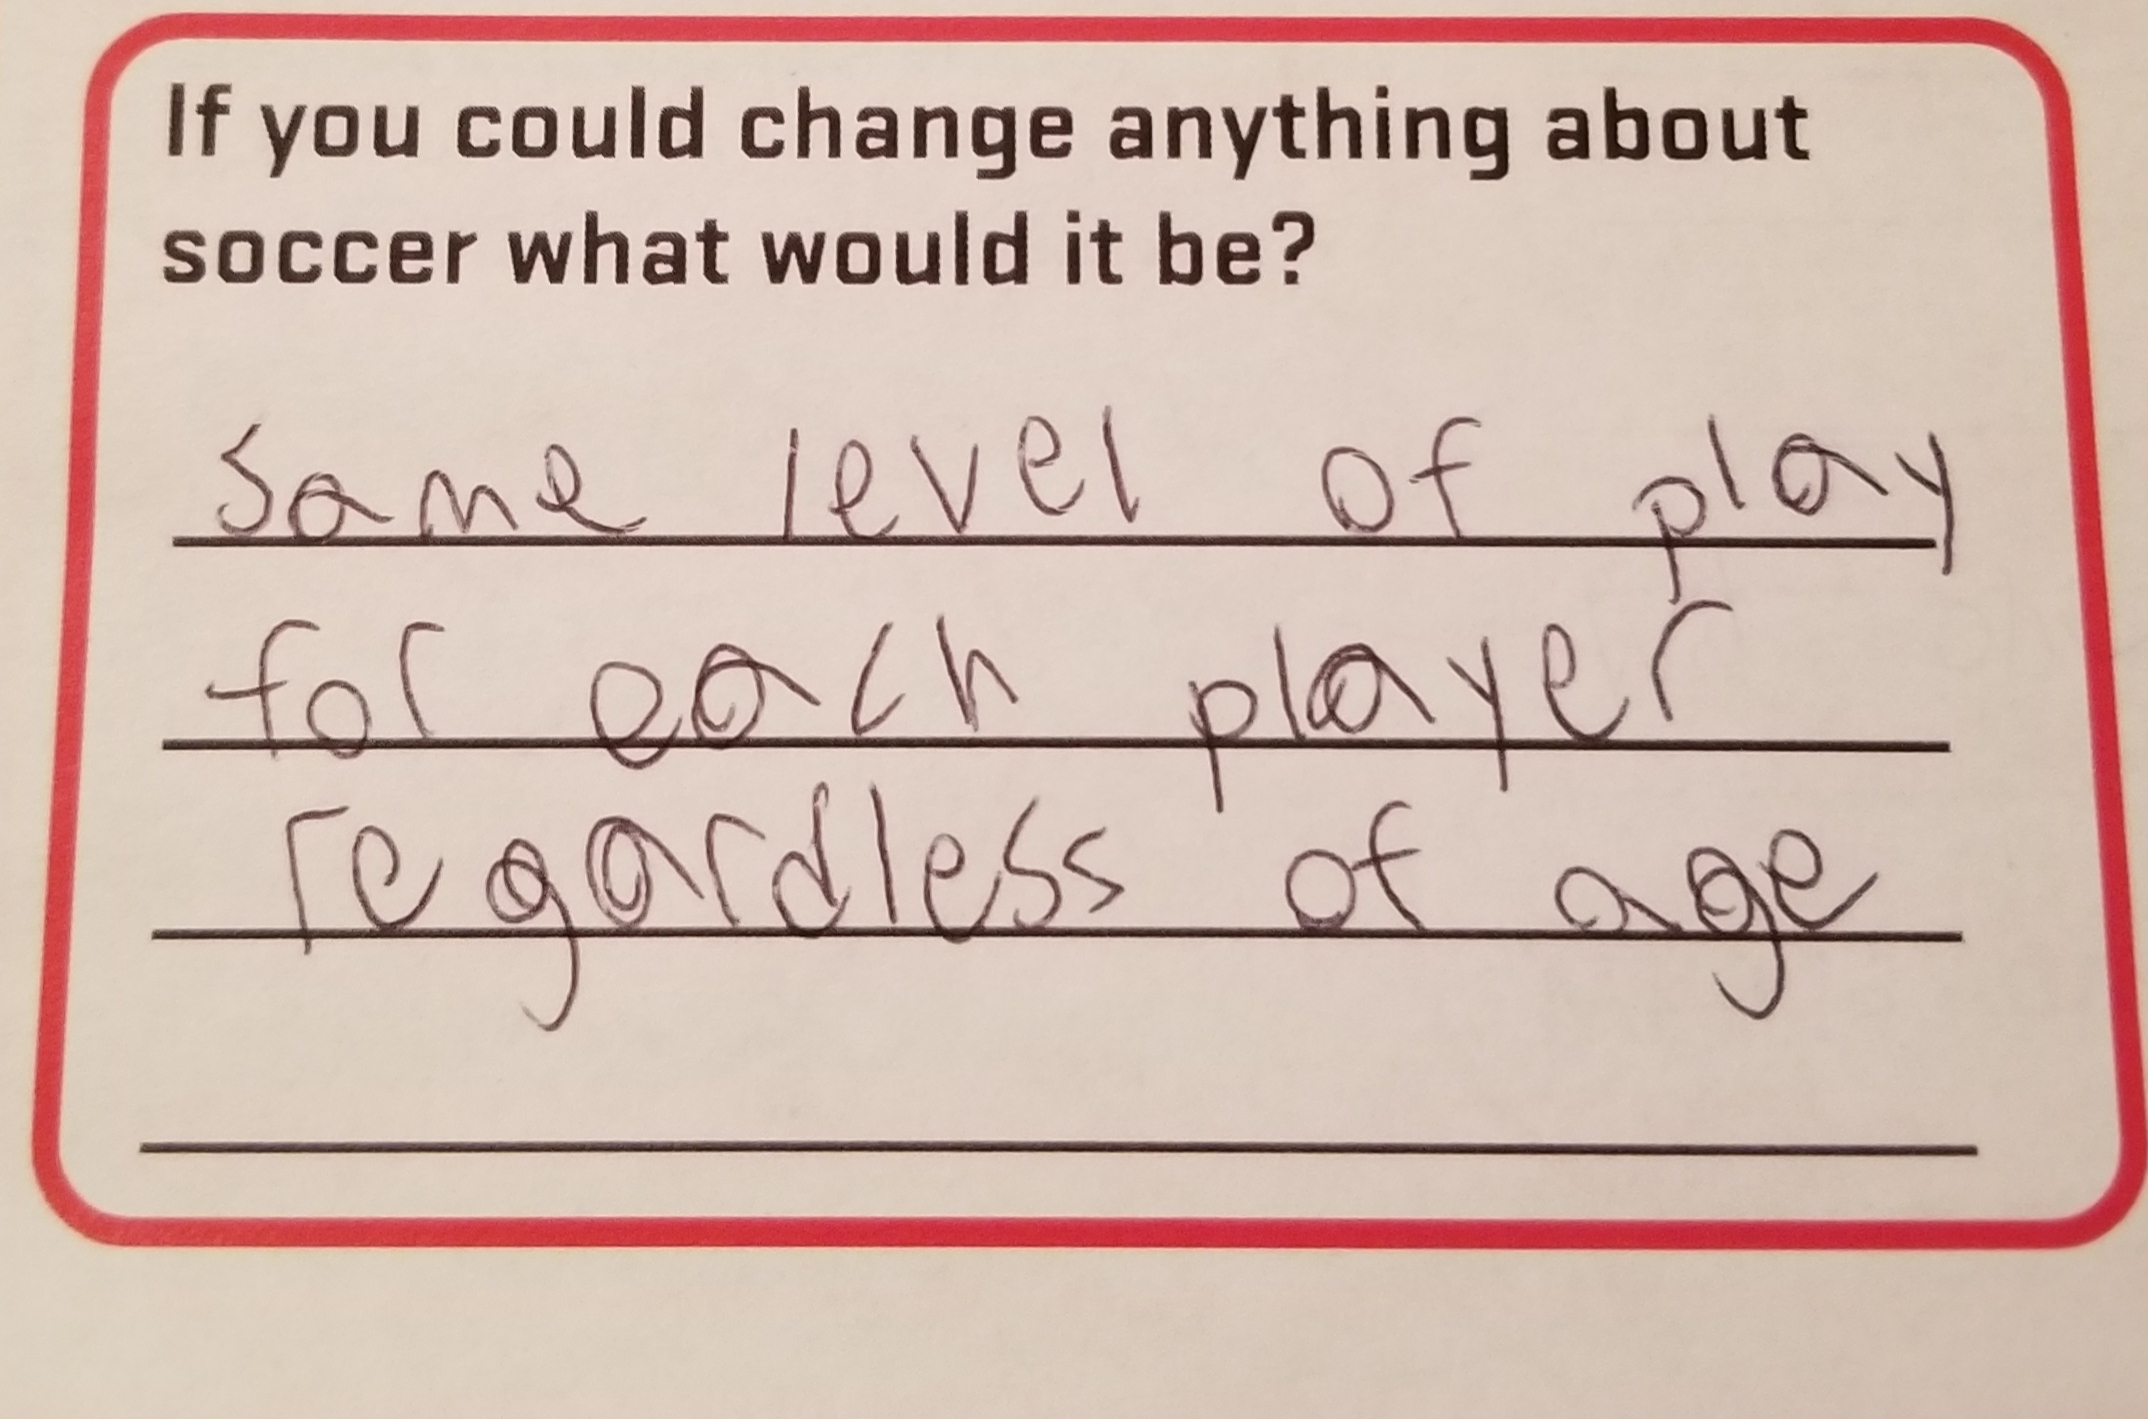 If you could change anything about
soccer what would it be?
Same level of play
for each player
regardless of age